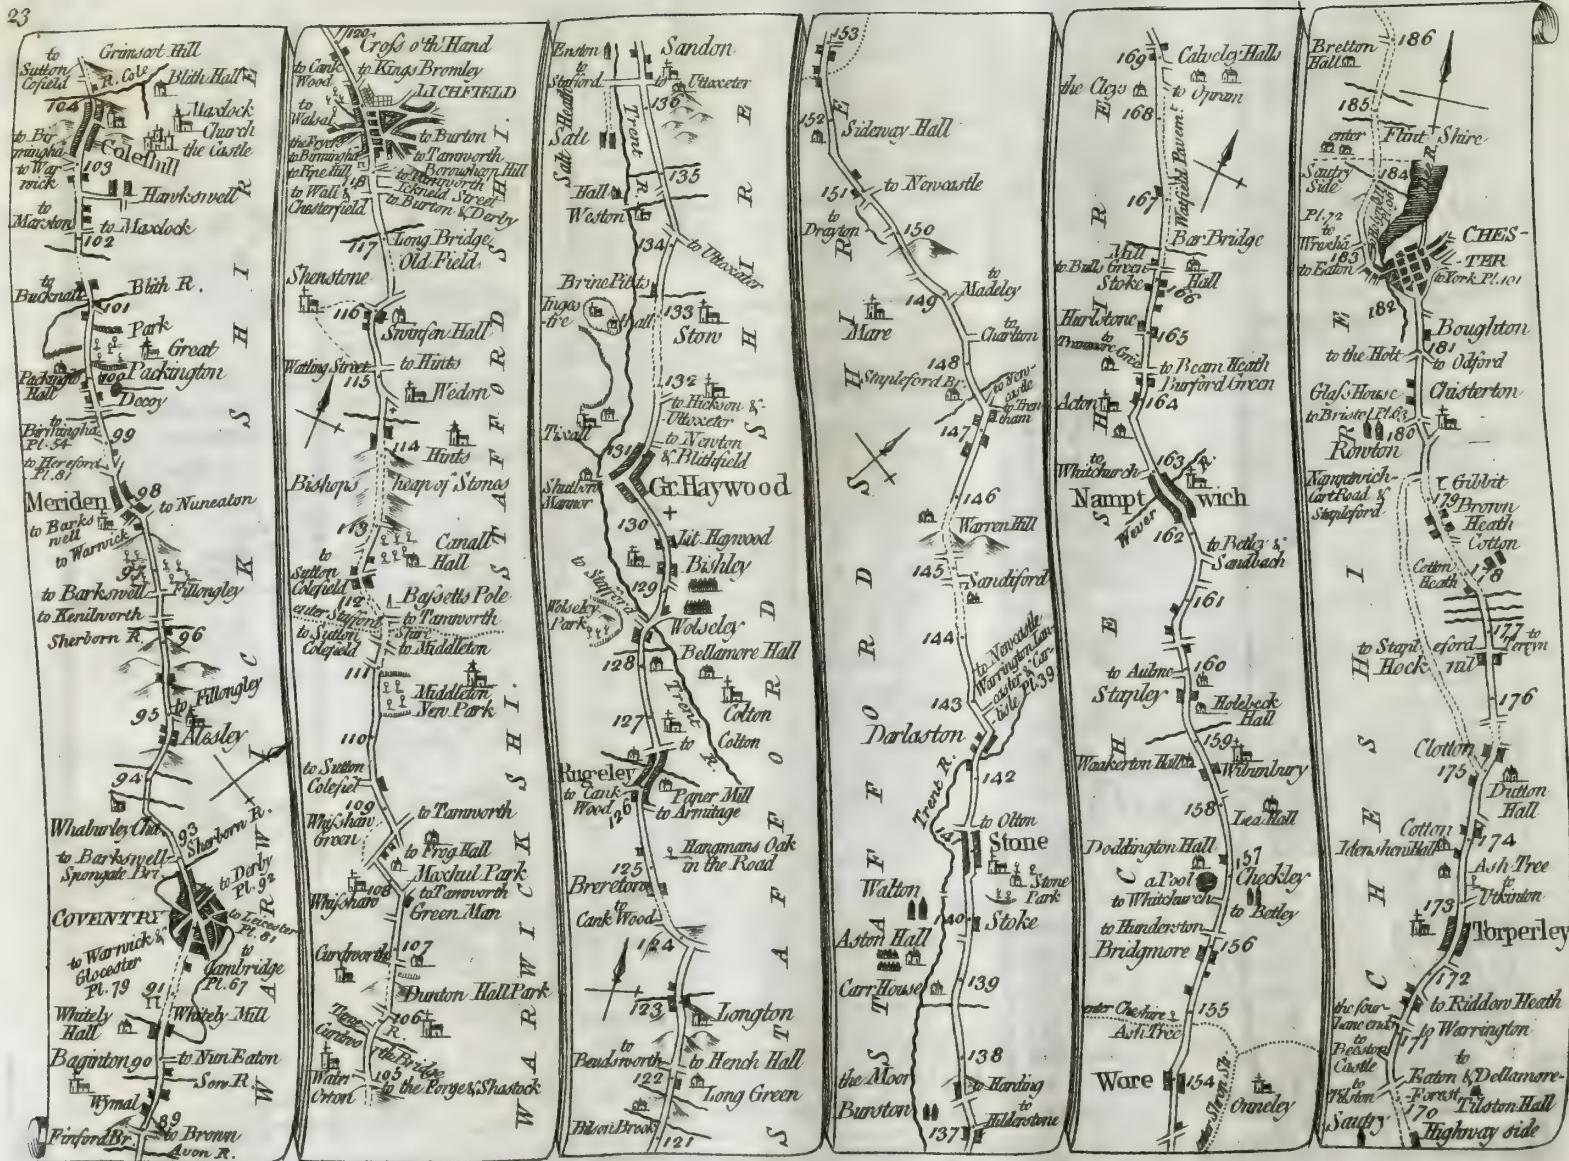 23
to
Sutton
Cofield
Grimscot Hill
R. Cole
Blith Hall
104
Maxlock
Church
the Castle
to Bir
mingha
Coleshill
to War
wick
103
Hawkswell
to
Marston
to Maxlock
102
to
Bucknall
Blith R.
101
Park
Great
Packington
Packingto
Hall
100
Decoy
to
Birmingha
Pl. 54
99
to Hereford
Pl. 81
Meriden
98
to Nuneaton
to Barks
well
to Warwick
97
to Barkswell
Fillongley
to Kenilworth
Sherborn R.
96
to Fillongley
95
Alesley
94
Whaburley Cha.
93
Sherborn R.
to Barkswell
Spongate Bri
to Derby
Pl. 92
COVENTRY
to Leicester
Pl. 81
to Warwick &
Glocester
Pl. 79
to
Cambridge
Pl. 67
91
Whitely
Hall
Whitely Mill
Baginton
90
to Nun Eaton
Sow R.
Wymal
89
Finford Br.
to Brown
Avon R.
WARWICK SHIRE
120
Cross oth Hand
to Cank
Wood
to Kings Bromley
LICHFIELD
to
Walsal
the Fryers
to Burton
to Birmingha
to Tamworth
to Pipe Hill
Boroughcop Hill
118
to Tamworth
to Wall &
Chesterfield
Ickneld Street
to Burton & Derby
117
Long Bridge
Old Field
Shenstone
116
Swinfen Hall
Watling Street
to Hints
115
Wedon
114
Hints
Bishops
heap of Stones
113
Canall
Hall
to
Sutton
Colefield
112
Bassetts Pole
enter Stafford
Shire
to Tamworth
to Sutton
Colefield
to Middleton
111
Middleton
New Park
110
to Sutton
Colefiel
109
to Tamworth
Whisshaw
Green
to Frog Hall
Maxhul Park
108
Whisshaw
to Tamworth
Green Man
107
Curdworth
Dunton Hall Park
106
Tame
R.
Curdwo
the Bridge
105
Water
Orton
to the Forge & Shastock
WARWICK SHI.
STAFFORD SHI.
Enston
Sandon
to
Stafford
to Uttoxeter
136
Salt
Salt Heath
Trent R.
135
Hall
Weston
134
to Uttoxeter
Brine Pitts
Inges
-tre
Hall
133
Stow
132
to Hickson &
Uttoxeter
Tixall
to Newton
& Blithfield
131
Shutboro
Mannor
Gt. Haywood
130
Lit. Haywood
Bishley
129
to Stafford
Wolseley
Park
Wolseley
Bellamore Hall
128
Trent
R.
Colton
127
to
Colton
Rugeley
to Cank
Wood
Paper Mill
126
to Armitage
Hangmans Oak
in the Road
125
Brereton
to
Cank Wood
124
123
Longton
to
Beudsworth
to Hench Hall
122
Long Green
Bilson Brook
121
STAFFORD SHIRE
153
152
Sideway Hall
151
to Newcastle
to
Drayton
150
to
Madeley
149
Mare
to
Charlton
148
Stapleford Br.
to New-
castle
to Tren
tham
147
146
Warren Hill
145
Sandiford
144
to Newcastle
Warrington Lan-
caster & Car-
lisle Pl. 39
143
Darlaston
142
Trent R.
to Olton
141
Stone
Stone
Park
Walton
140
Stoke
Aston Hall
139
Carr House
138
the Moor
to Harding
Burston
to
Hilderstone
137
STAFFORD SHIRE
169
Calveley Halls
the Cleys
to Opram
168
Watfield Pavem.t
167
Mill
Bar Bridge
to Bulls Green
Hall
Stoke
166
Hurlstone
165
to
Tranmore Green
to Beam Heath
Burford Green
Acton
164
to
Whitchurch
163
R.
Nampt
wich
Wever
162
to Betley &
Sandbach
161
160
Stapley
Holebeck
Hall
159
Waakerton Hall
Wibunbury
158
Lea Hall
Doddington Hall
157
Checkley
a Pool
to Whitchurch
to Betley
to Hunderston
Bridgmore
156
155
enter Cheshire
Ash Tree
Wore
154
Onneley
CHESHIRE
186
Bretton
Hall
185
enter
Flint Shire
184
Sautry
Side
Dee R.
Pl. 72
to
Wrexha
183
CHES-
TER
to Eaton
to York Pl. 101
182
Boughton
181
to the Holt
to Odford
Glass House
Chisterton
to Bristol Pl. 63
180
Rowton
Namptwich
Cart Road &
Stapleford
Gibbit
179
Brown
Heath
Cotton
Cotton
Heath
178
177
to
Tervyn
to Stapleford
Hock
176
Clotton
175
Dutton
Hall
Cotton
174
Idenshen Hall
Ash Tree
to
Utkinton
173
Torperley
172
the four
lane ends
to Riddow Heath
to Warrington
171
to
Beeston
Castle
to
Eaton & Dellamore-
Forest
to
Tilston
170
Tilston Hall
Sautry
Highway side
CHESHIRE